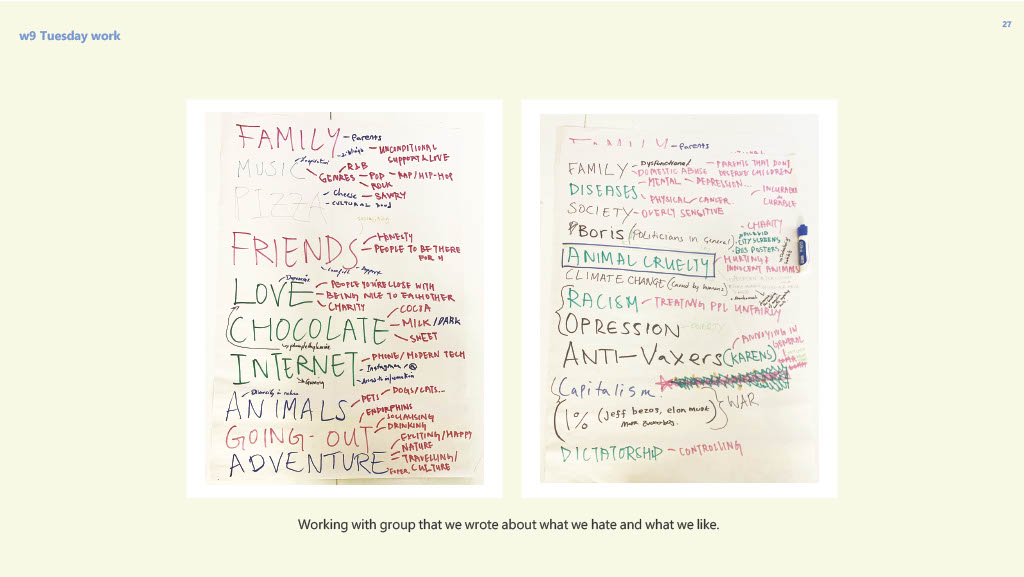 w9 Tuesday work
27
FAMILY - Parents
- UNCONDITIONAL
SUPPORT & LOVE
MUSIC
GENRES - R&B
- POP - RAP/HIP-HOP
- ROCK
PIZZA
- cheese - SAVORY
- CULTURAL FOOD
FRIENDS
- HONESTY
- PEOPLE TO BE THERE
FOR U
LOVE
- PEOPLE YOU'RE CLOSE WITH
- BEING NICE TO EACHOTHER
- CHARITY
CHOCOLATE
- COCOA
- MILK/DARK
- SWEET
INTERNET
- PHONE/MODERN TECH
- Instagram
Gaming
ANIMALS
- PETS - DOGS/CATS...
GOING-OUT
- ENDORPHINS
- SOCIALISING
- DRINKING
ADVENTURE
- EXCITING/HAPPY
- NATURE
- TRAVELLING/
CULTURE
FAMILY - Parents
FAMILY - Dysfunctional
- DOMESTIC ABUSE
- PARENTS THAT DON'T
DESERVE CHILDREN
DISEASES - MENTAL - DEPRESSION...
PHYSICAL - CANCER
INCURABLE
CURABLE
SOCIETY - OVERLY SENSITIVE
Boris (Politicians in General)
- CHARITY
- CITY SCREENS
- BUS POSTERS
ANIMAL CRUELTY
- HURTING
INNOCENT ANIMALS
CLIMATE CHANGE (caused by humans)
RACISM - TREATING PPL UNFAIRLY
OPRESSION
ANTI-VAXERS (KARENS)
- ANNOYING IN
GENERAL
Capitalism
1% (Jeff bezos, elon musk
WAR
DICTATORSHIP - CONTROLLING
Working with group that we wrote about what we hate and what we like.